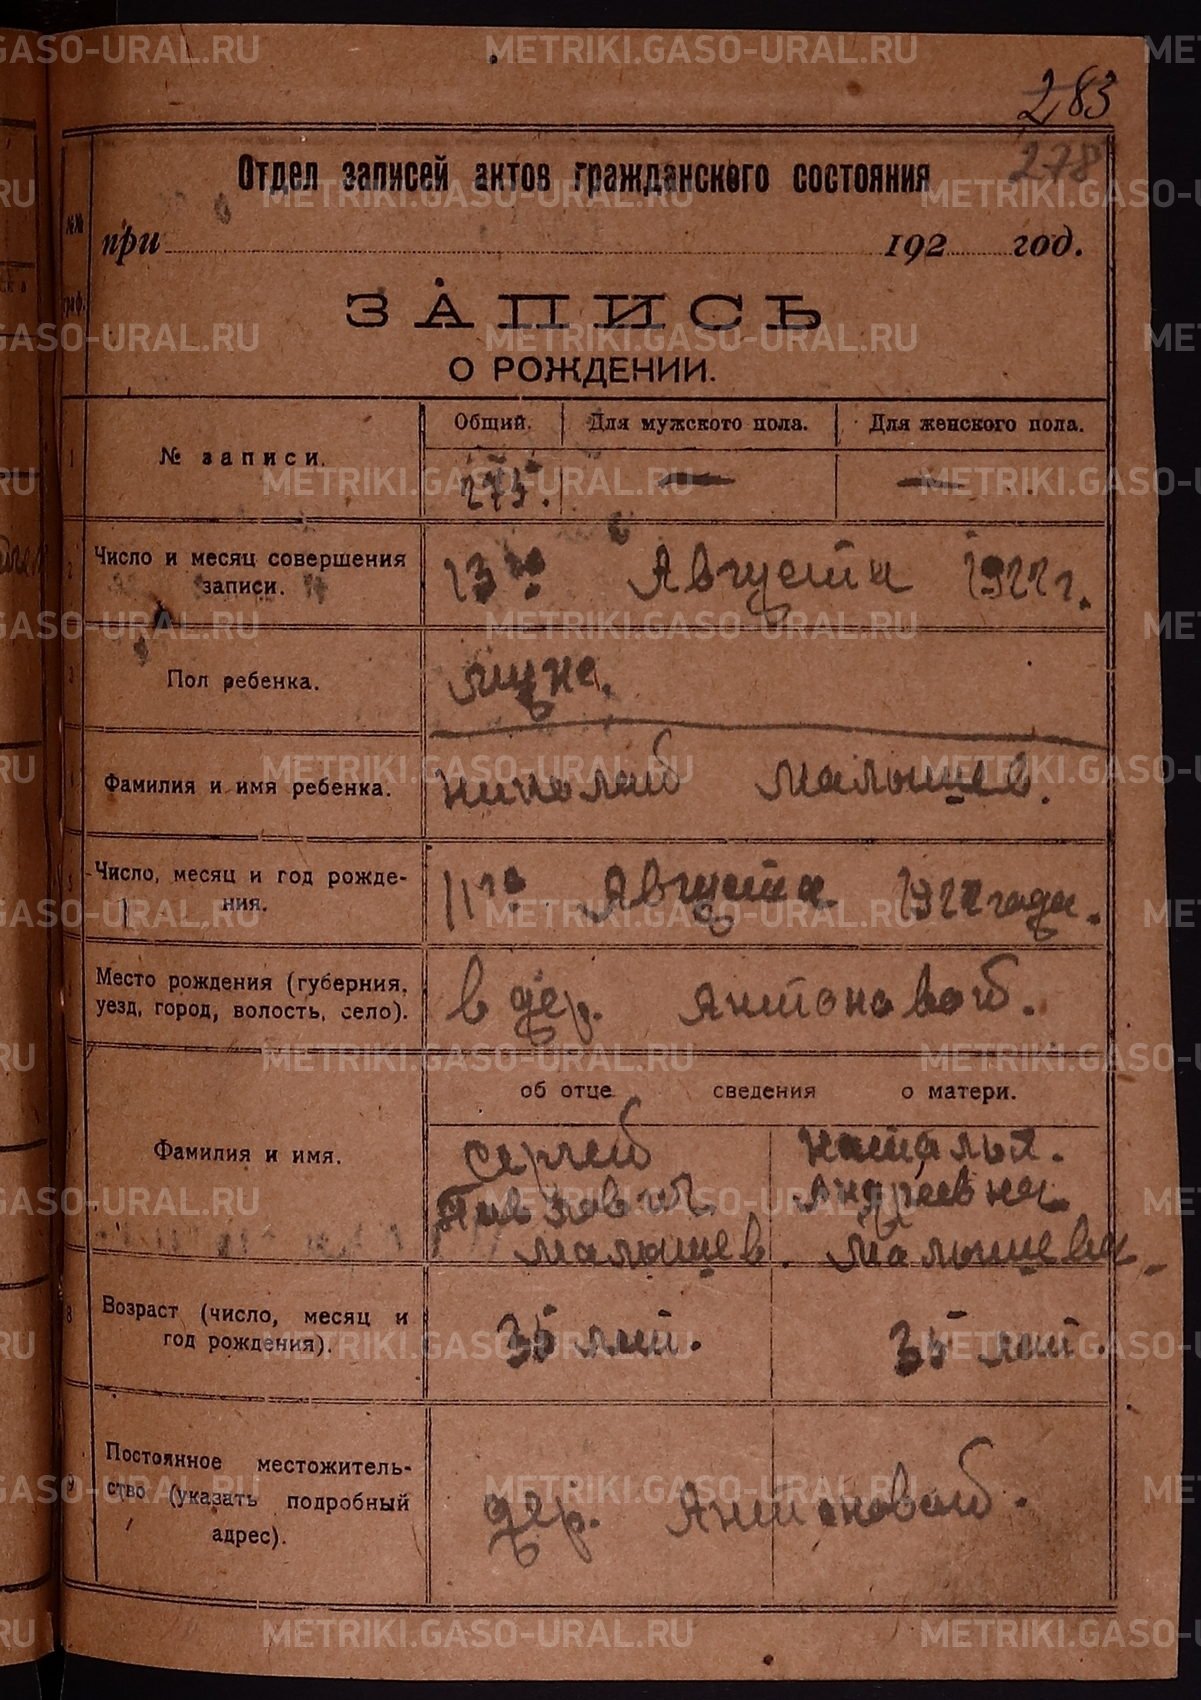 283
278
Отдел записей актов гражданского состояния
№№ граф.
при 192 год.
ЗАПИСЬ
О РОЖДЕНИИ.
1 № записи. Общий. Для мужского пола. Для женского пола.
275. — —
2 Число и месяц совершения записи. 13го Августа 1922 г.
3 Пол ребенка. муж.
4 Фамилия и имя ребенка. Николай Малышев.
5 Число, месяц и год рожде-
ния. 11го Августа 1922 года.
Место рождения (губерния,
уезд, город, волость, село). в дер. Антоновой.
об отце сведения о матери.
Фамилия и имя. Сергей Наталья.
Андреевна
Малышев. Малышева
8 Возраст (число, месяц и
год рождения). 35 лет. 35 лет.
9 Постоянное местожитель-
ство (указать подробный
адрес). дер. Антоновой.
METRIKI.GASO-URAL.RU